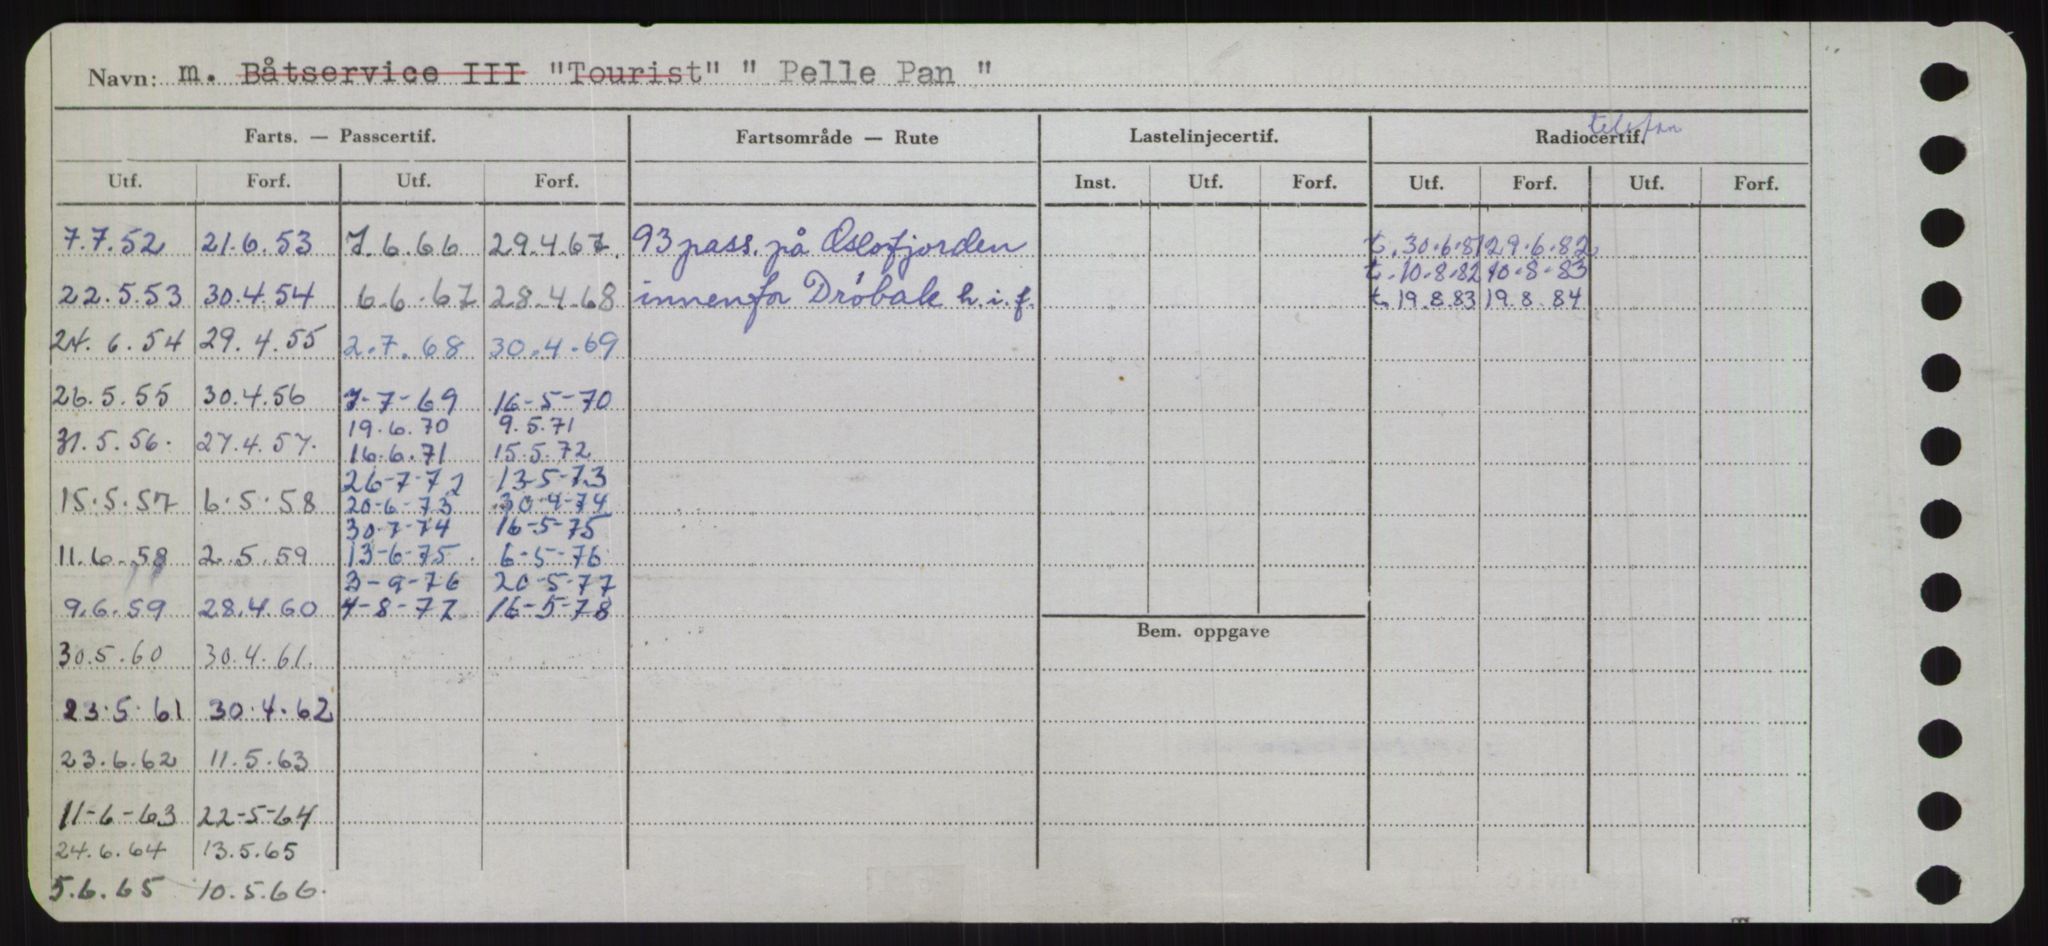 Navn: m. Båtservice III "Tourist" " Pelle Pan "
Farts. — Passcertif. Fartsområde — Rute Lastelinjecertif. Radiocertif. telefon
Utf. Forf. Utf. Forf. Inst. Utf. Forf. Utf. Forf. Utf. Forf.
7.7.52 21.6.53 7.6.66 29.4.67. 93 pass. på Oslofjorden t. 30.6.81 29.6.82
t. 10-8-82 10-8-83
22.5.53 30.4.54 6.6.67 28.4.68 innenfor Drøbak h.i.f. t. 19.8.83 19.8.84
24.6.54 29.4.55 2.7.68 30.4.69
26.5.55 30.4.56 7-7-69 16-5-70
19.6.70 9.5.71
31.5.56. 27.4.57. 16.6.71 15.5.72
26-7-72 13-5-73
15.5.57 6.5.58 20-6-73 30-4-74
30-7-74 16-5-75
11.6.58 2.5.59 13-6-75. 6-5-76
3-9-76 20-5-77
9.6.59 28.4.60 4-8-77 16-5-78
30.5.60 30.4.61. Bem. oppgave
23.5.61 30.4.62
23.6.62 11.5.63
11-6-63 22-5-64
24.6.64 13.5.65
5.6.65 10.5.66.